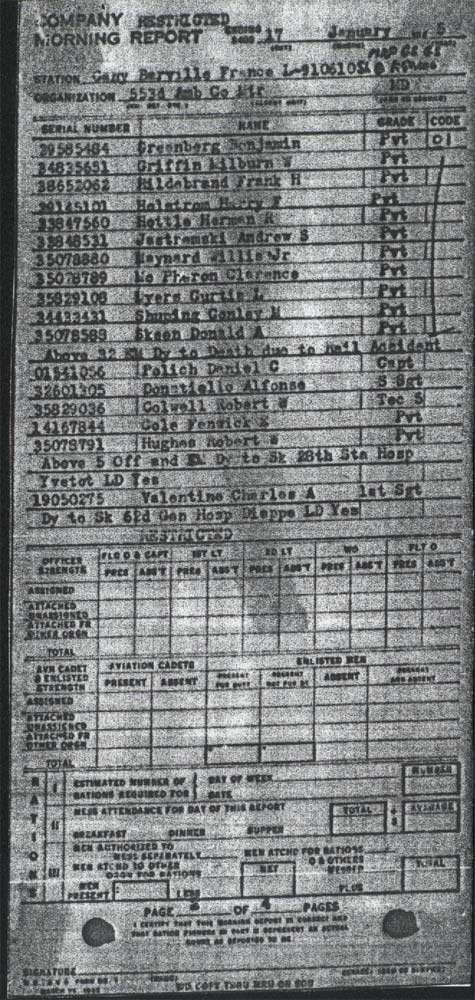 COMPANY RESTRICTED
MORNING REPORT ENDING 17 January 5
STATION Cany Barville France
ORGANIZATION 553d Amb Co MD
SERIAL NUMBER NAME GRADE CODE
39585484 Greenberg Benjamin Pvt 01
34835651 Griffin Wilburn W Pvt
38652062 Hildebrand Frank H Pvt
39145101 Holstrom Harry F Pvt
33847560 Hottle Herman R Pvt
33948531 Jastremski Andrew S Pvt
35078880 Maynard Willis Jr Pvt
35078789 Mc Pheron Clarence Pvt
35829108 Myers Curtis L Pvt
34433431 Shuping Conley M Pvt
35078588 Skeen Donald A Pvt
Above 32 EM Dy to Death due to Rail Accident
01541056 Polich Daniel C Capt
32601305 Donatiello Alfonse S Sgt
35829036 Colwell Robert W Tec 5
14167844 Cole Fenwick Pvt
35078791 Hughes Robert Pvt
Above 5 Off and EM Dy to Sk 28th Sta Hosp
Yvetot LD Yes
19050275 Valentine Charles A 1st Sgt
Dy to Sk 62d Gen Hosp Dieppe LD Yes
RESTRICTED
OFFICER STRENGTH FLD O & CAPT 1ST LT 2D LT WO FLT O
PRES ABS'T PRES ABS'T PRES ABS'T PRES ABS'T PRES ABS'T
ASSIGNED
ATTACHED UNASSIGNED
ATTACHED FR OTHER ORGN
TOTAL
AVN CADET & ENLISTED STRENGTH AVIATION CADETS ENLISTED MEN
PRESENT ABSENT PRESENT FOR DUTY PRESENT NOT FOR DY ABSENT PRESENT AND ABSENT
ASSIGNED
ATTACHED UNASSIGNED
ATTACHED FR OTHER ORGN
TOTAL
RATIONS
I ESTIMATED NUMBER OF RATIONS REQUIRED FOR DAY OF WEEK DATE NUMBER
II MESS ATTENDANCE FOR DAY OF THIS REPORT TOTAL ÷ 3 AVERAGE
BREAKFAST DINNER SUPPER
III MEN AUTHORIZED TO MESS SEPARATELY MEN ATCHD FOR RATIONS
MEN ATCHD TO OTHER ORGN FOR RATIONS NET & OTHERS MESSED TOTAL
MEN PRESENT LESS PLUS
PAGE OF 4 PAGES
I CERTIFY THAT THIS MORNING REPORT IS CORRECT AND
THAT RATION FIGURES IN PART II REPRESENT AN ACTUAL
COUNT AS REPORTED TO ME
SIGNATURE
W.D., A.G.O. FORM NO. 1
WD COPY THRU MRU OR SCU